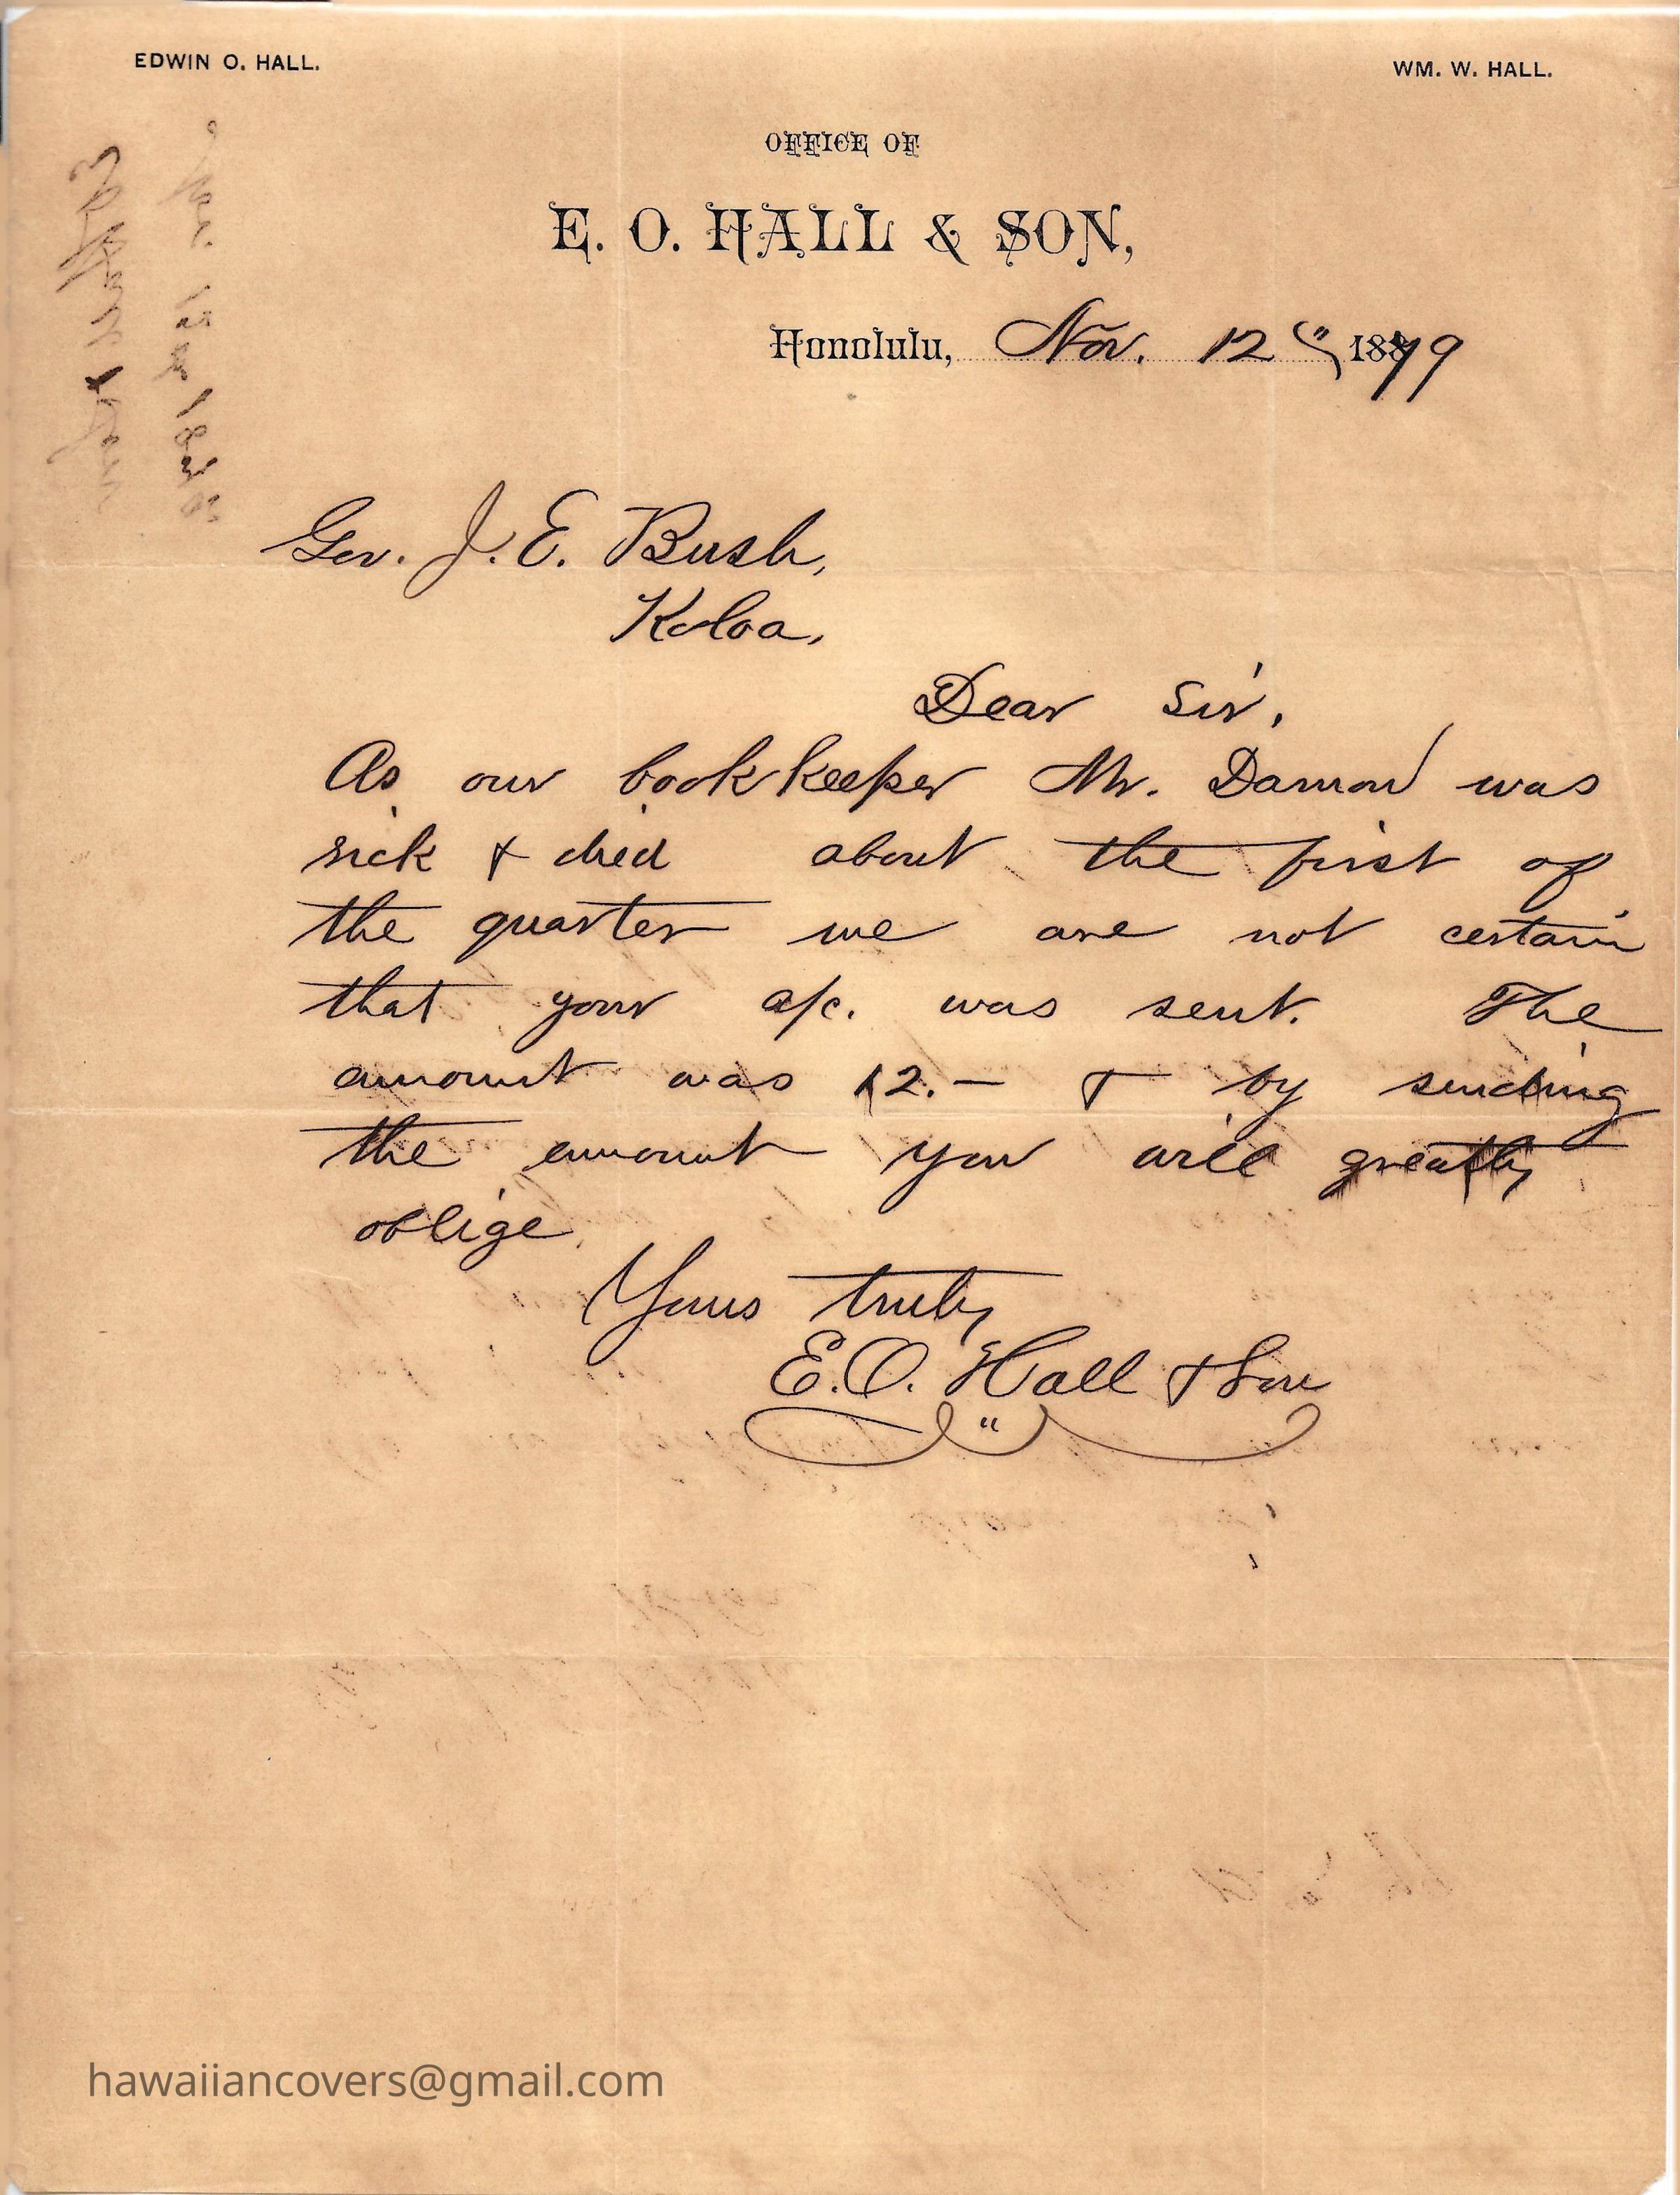 EDWIN O. HALL.
WM. W. HALL.
OFFICE OF
E. O. HALL & SON,
Honolulu, Nov. 12 1879
Gov. J. E. Bush,
Koloa,
Dear Sir,
As our bookkeeper Mr. Damon was
sick & died about the first of
the quarter we are not certain
that your a/c. was sent. The
amount was 12.— & by sending
the amount you will greatly
oblige
Yours truly
E.O. Hall & Son
hawaiiancovers@gmail.com